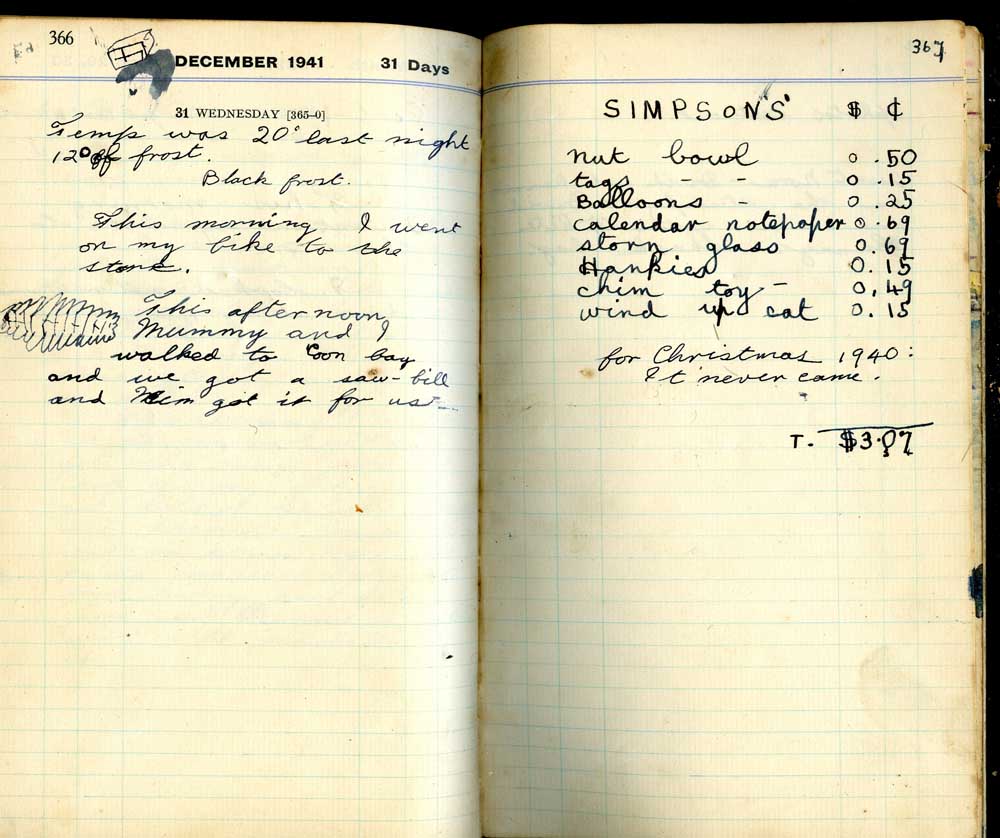 366
DECEMBER 1941 31 Days
31 WEDNESDAY [365–0]
Temp was 20° last night
12° of frost.
Black frost.
This morning I went
on my bike to the
store.
This afternoon
Mummy and I
walked to Coon bay
and we got a saw-bill
and Mim got it for us
367
SIMPSON'S $ ¢
nut bowl 0.50
tags - - 0.15
Balloons - 0.25
calendar notepaper 0.69
storn glass 0.69
Hankies 0.15
chim toy - 0.49
wind up cat 0.15
for Christmas 1940:
It never came.
T. $3.07